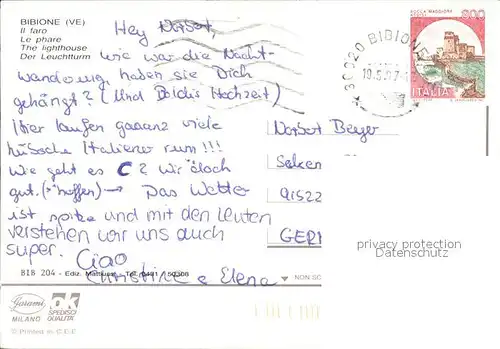 BIBIONE (VE)
Il faro
Le phare
The lighthouse
Der Leuchtturm
Hey Norbert,
wie war die Nacht-
wanderung, haben sie Dich
gehängt? (Und Poldis Hochzeit)
Hier laufen gaaanz viele
hübsche Italiener rum!!!
Wie geht es Wir doch
gut. (hoffen) → Das Wetter
ist spitze und mit den Leuten
verstehen wir uns auch
super. Ciao
Christine & Elena
ROCCA MAGGIORE
ASSISI
800
ITALIA
30020 BIBIONE
Norbert Berger
9522
GER
privacy protection
Datenschutz
BIB 204 - Ediz. Tel. 0431 / 50308
NON SC
Garami
MILANO
OK
SPEDISCI
QUALITA'
© Printed in C.E.E.